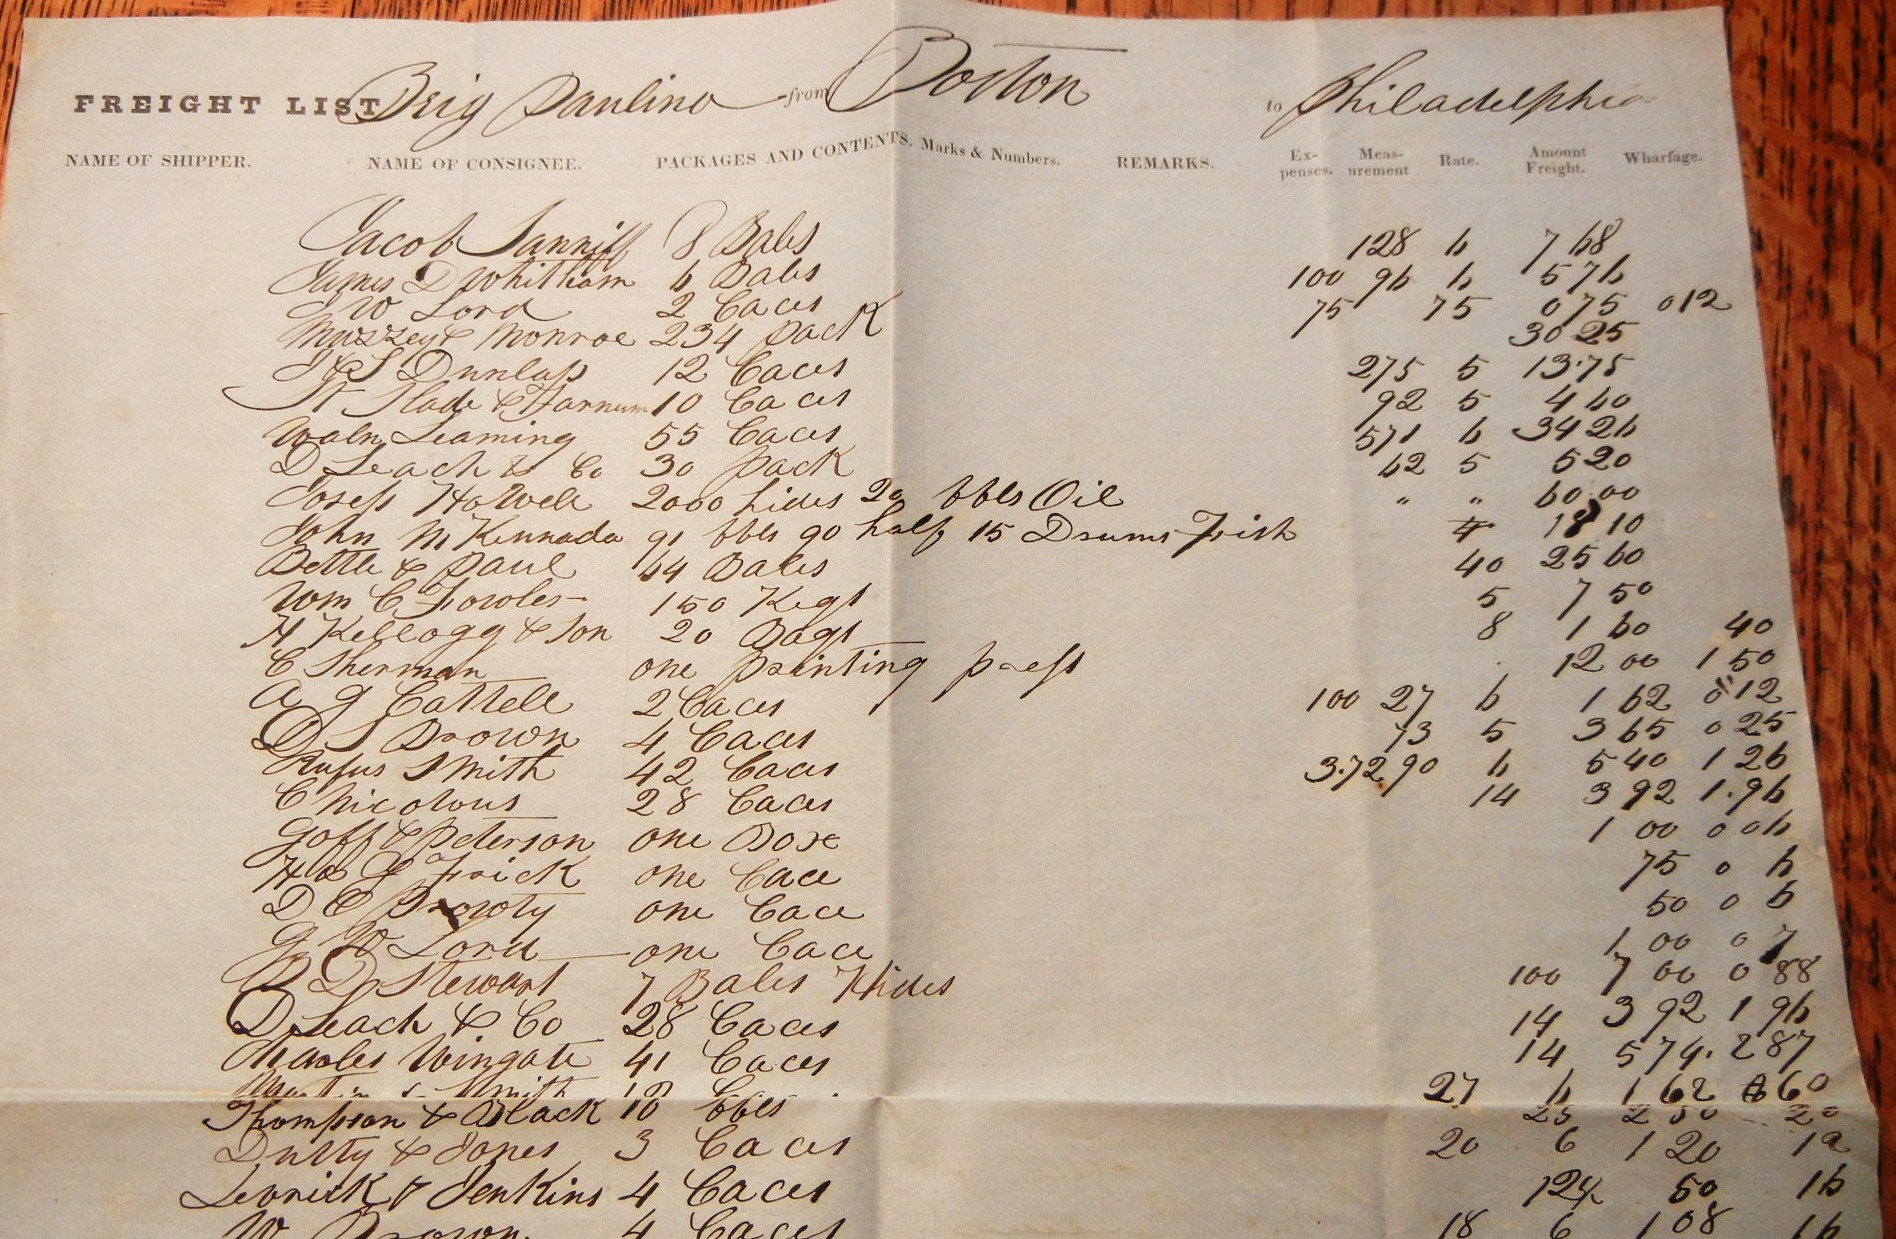 FREIGHT LIST Brig Paulina from Boston to Philadelphia
NAME OF SHIPPER. NAME OF CONSIGNEE. PACKAGES AND CONTENTS. Marks & Numbers. REMARKS. Ex-penses. Meas-urement Rate. Amount Freight. Wharfage.
Jacob 8 Bales 128 6 7 68
James D Whitham 6 Bales 100 96 6 5 76
W Lord 2 Caces 75 75 0 75 0 12
Muzzey & Monroe 234 Pack 30 25
S Dunlap 12 Caces 275 5 13.75
Slade & Farnum 10 Caces 92 5 4 60
Waln Leaming 55 Caces 571 6 34 26
D Leach & Co 30 Pack 62 5 5 20
Joseph Howell 2000 hides 20 bbls Oil " " 60.00
John M Kennada 91 bbls 90 half 15 Drums Fish 4 18 10
Bettle & Paul 64 Bales 40 25 60
Wm C Fowler 150 Kegs 5 7 50
H Kellogg & Son 20 Bags 8 1 60 40
C Sherman one printing press 12 00 1 50
A G Cattell 2 Caces 100 27 6 1 62 0 12
D S Brown 4 Caces 73 5 3 65 0 25
Rufus Smith 42 Caces 3.72 90 6 5 40 1 26
C Nicolous 28 Caces 14 3 92 1.96
Goff & Peterson one Boxe 1 00 0 06
Frick one Cace 75 0 6
D C Prowty one Cace 50 0 6
G W Lord one Cace 1 00 0 7
D Stewart 7 Bales Hides 100 7 00 0 88
D Leach & Co 28 Caces 14 3 92 1 96
Charles Wingate 41 Caces 14 5 74. 2 87
Smith 27 6 1 62 60
Thompson & Black 10 bbls 25 2 50 20
Dutty & Jones 3 Caces 20 6 1 20 12
& Jenkins 4 Caces 12½ 50 16
W Brown 4 Caces 18 6 1 08 16